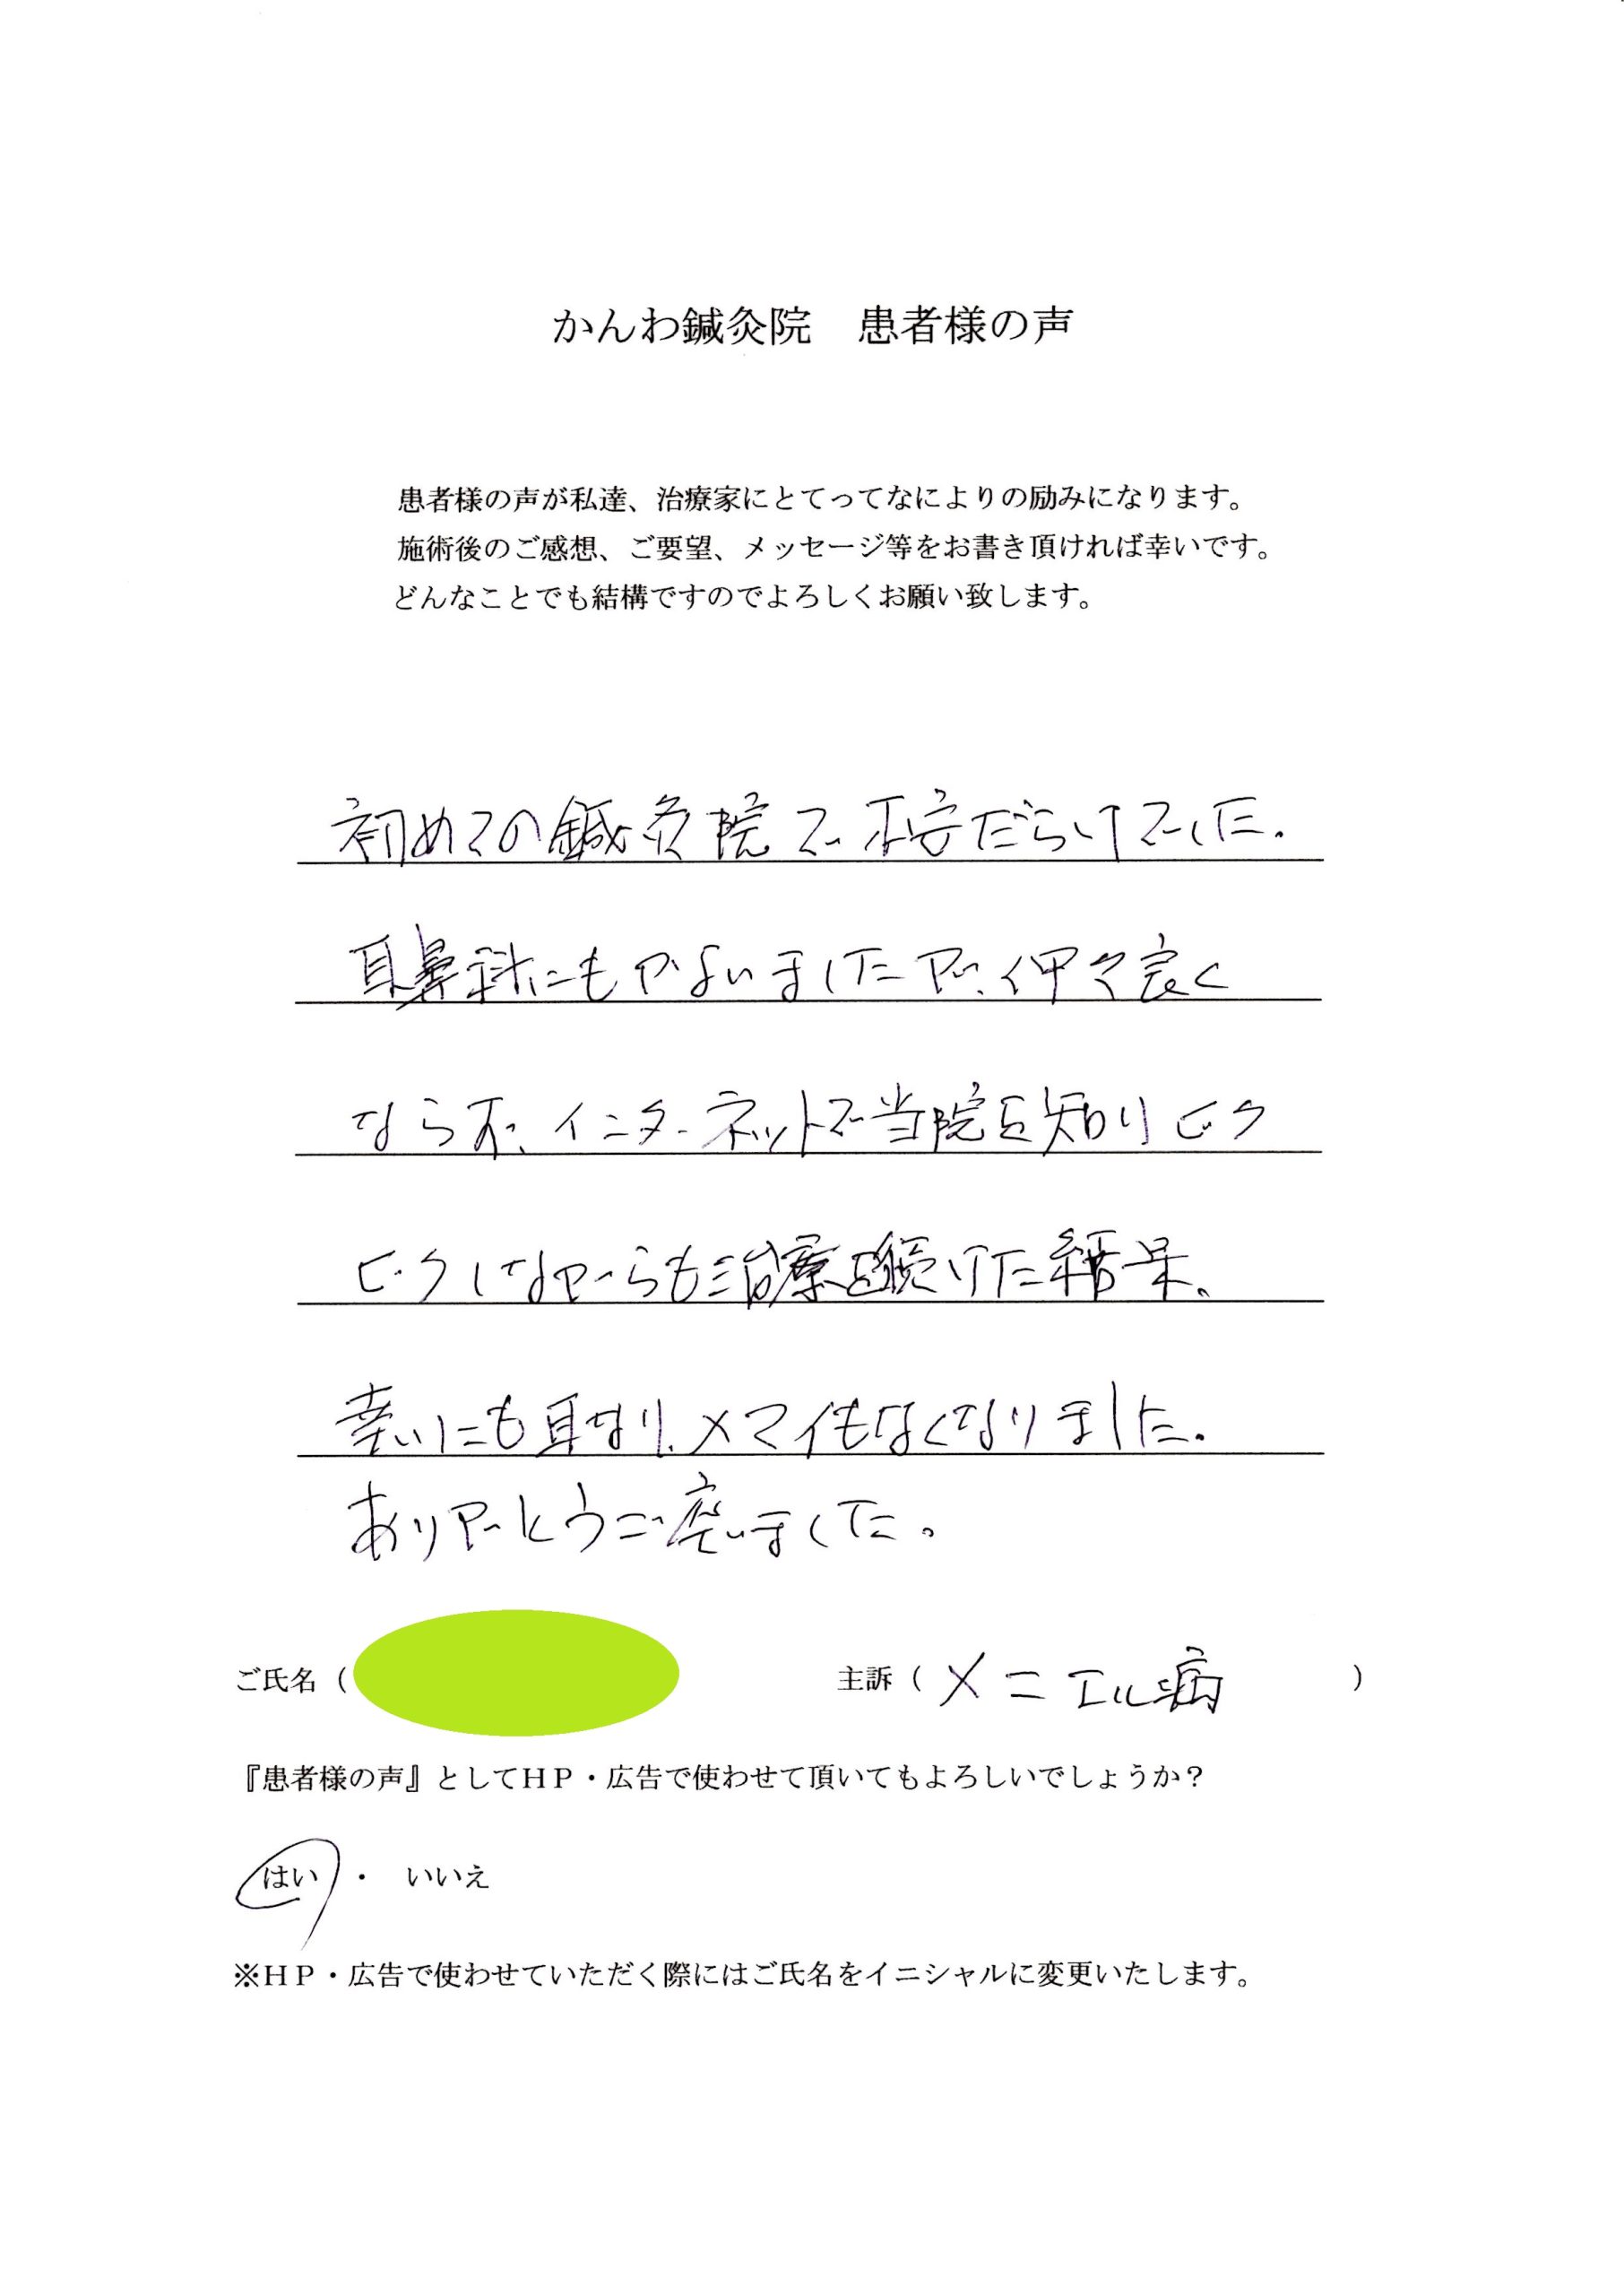 かんわ鍼灸院　患者様の声
患者様の声が私達、治療家にとてってなによりの励みになります。
施術後のご感想、ご要望、メッセージ等をお書き頂ければ幸いです。
どんなことでも結構ですのでよろしくお願い致します。
初めての鍼灸院で不安だらけでした.
耳鼻科にもかよいましたが、仲々良く
ならず、インターネットで当院を知りビク
ビクしながらも治療を続けた結果、
幸いにも耳なり、メマイもなくなりました.
ありがとうご座いました。
ご氏名（　主訴（メニエル病　）
『患者様の声』としてＨＰ・広告で使わせて頂いてもよろしいでしょうか？
はい ・ いいえ
※ＨＰ・広告で使わせていただく際にはご氏名をイニシャルに変更いたします。